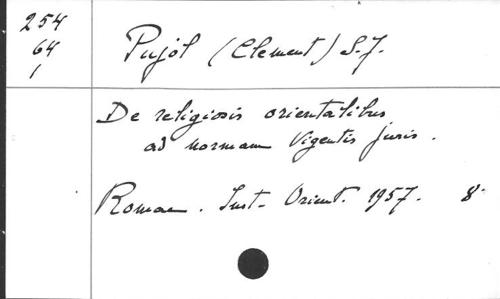 254
64
1
Pujol (Clement) S.J.
De religiosis orientalibus
ad normam Vigentis juris.
Romae. Inst. Orient. 1957. 8°